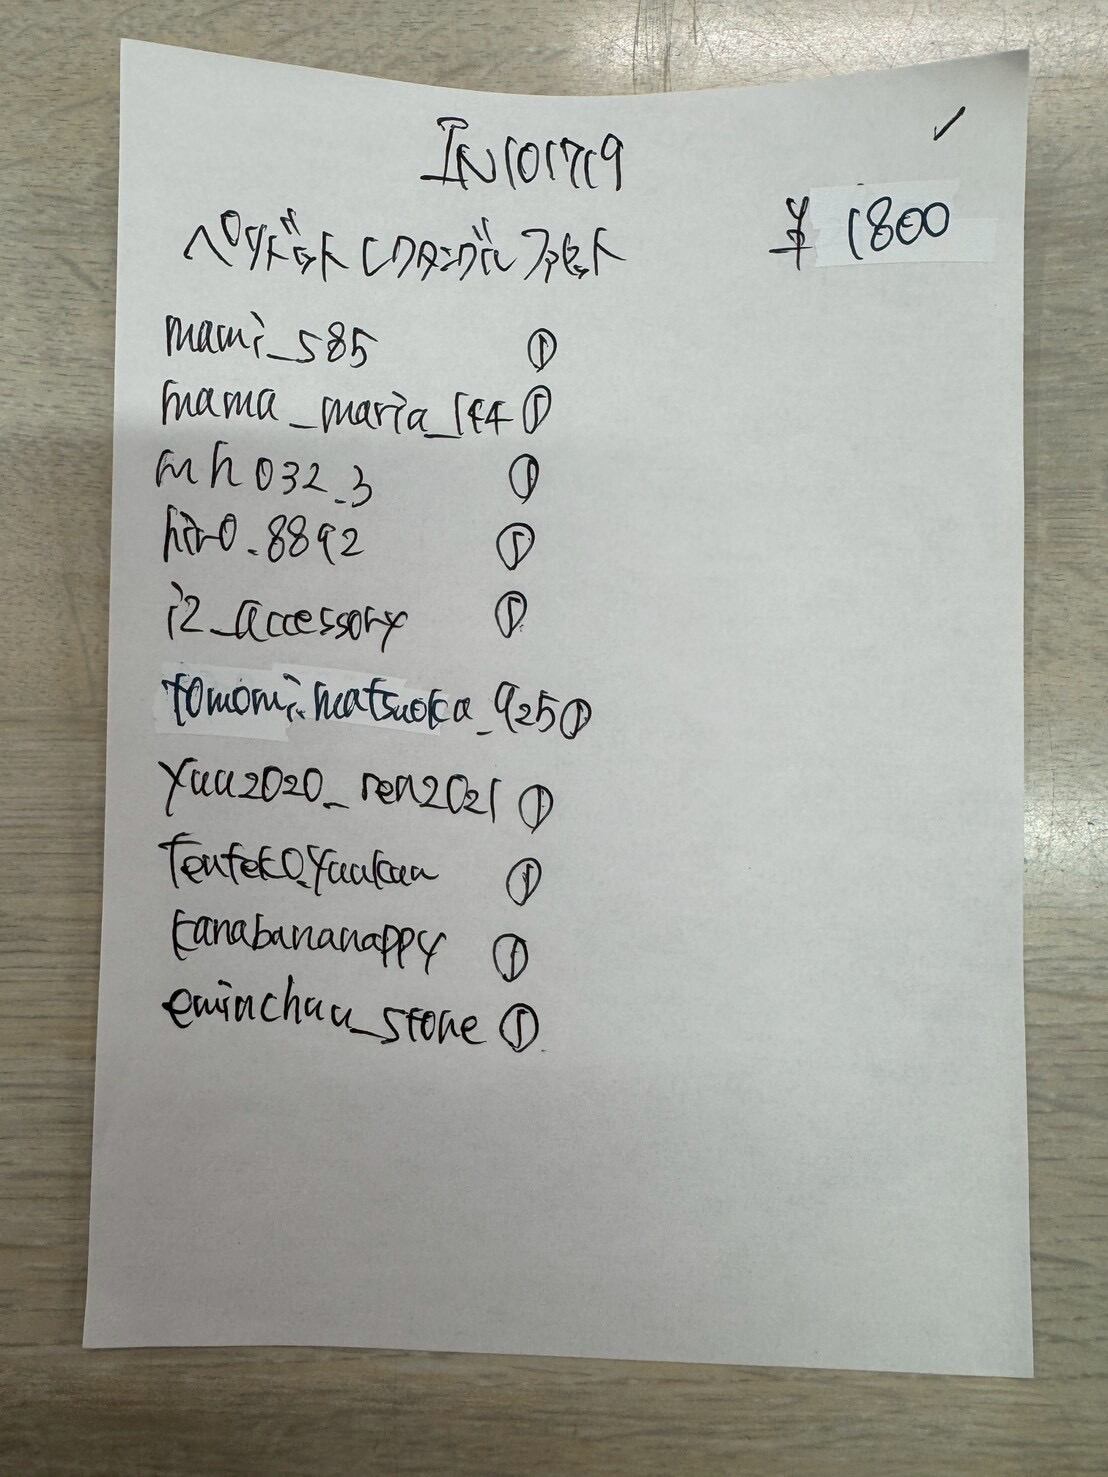 IN101719
ペリドット レクタングル ファセット ¥1800
mami_s85 ①
mama_maria_144 ①
mh032_3 ①
hiro.8892 ①
i2_accessory ①
tomomi.matsuoka_925 ①
yuu2020_ren2021 ①
tenteko.yuukun ①
kanabananappy ①
eminchuu_stone ①